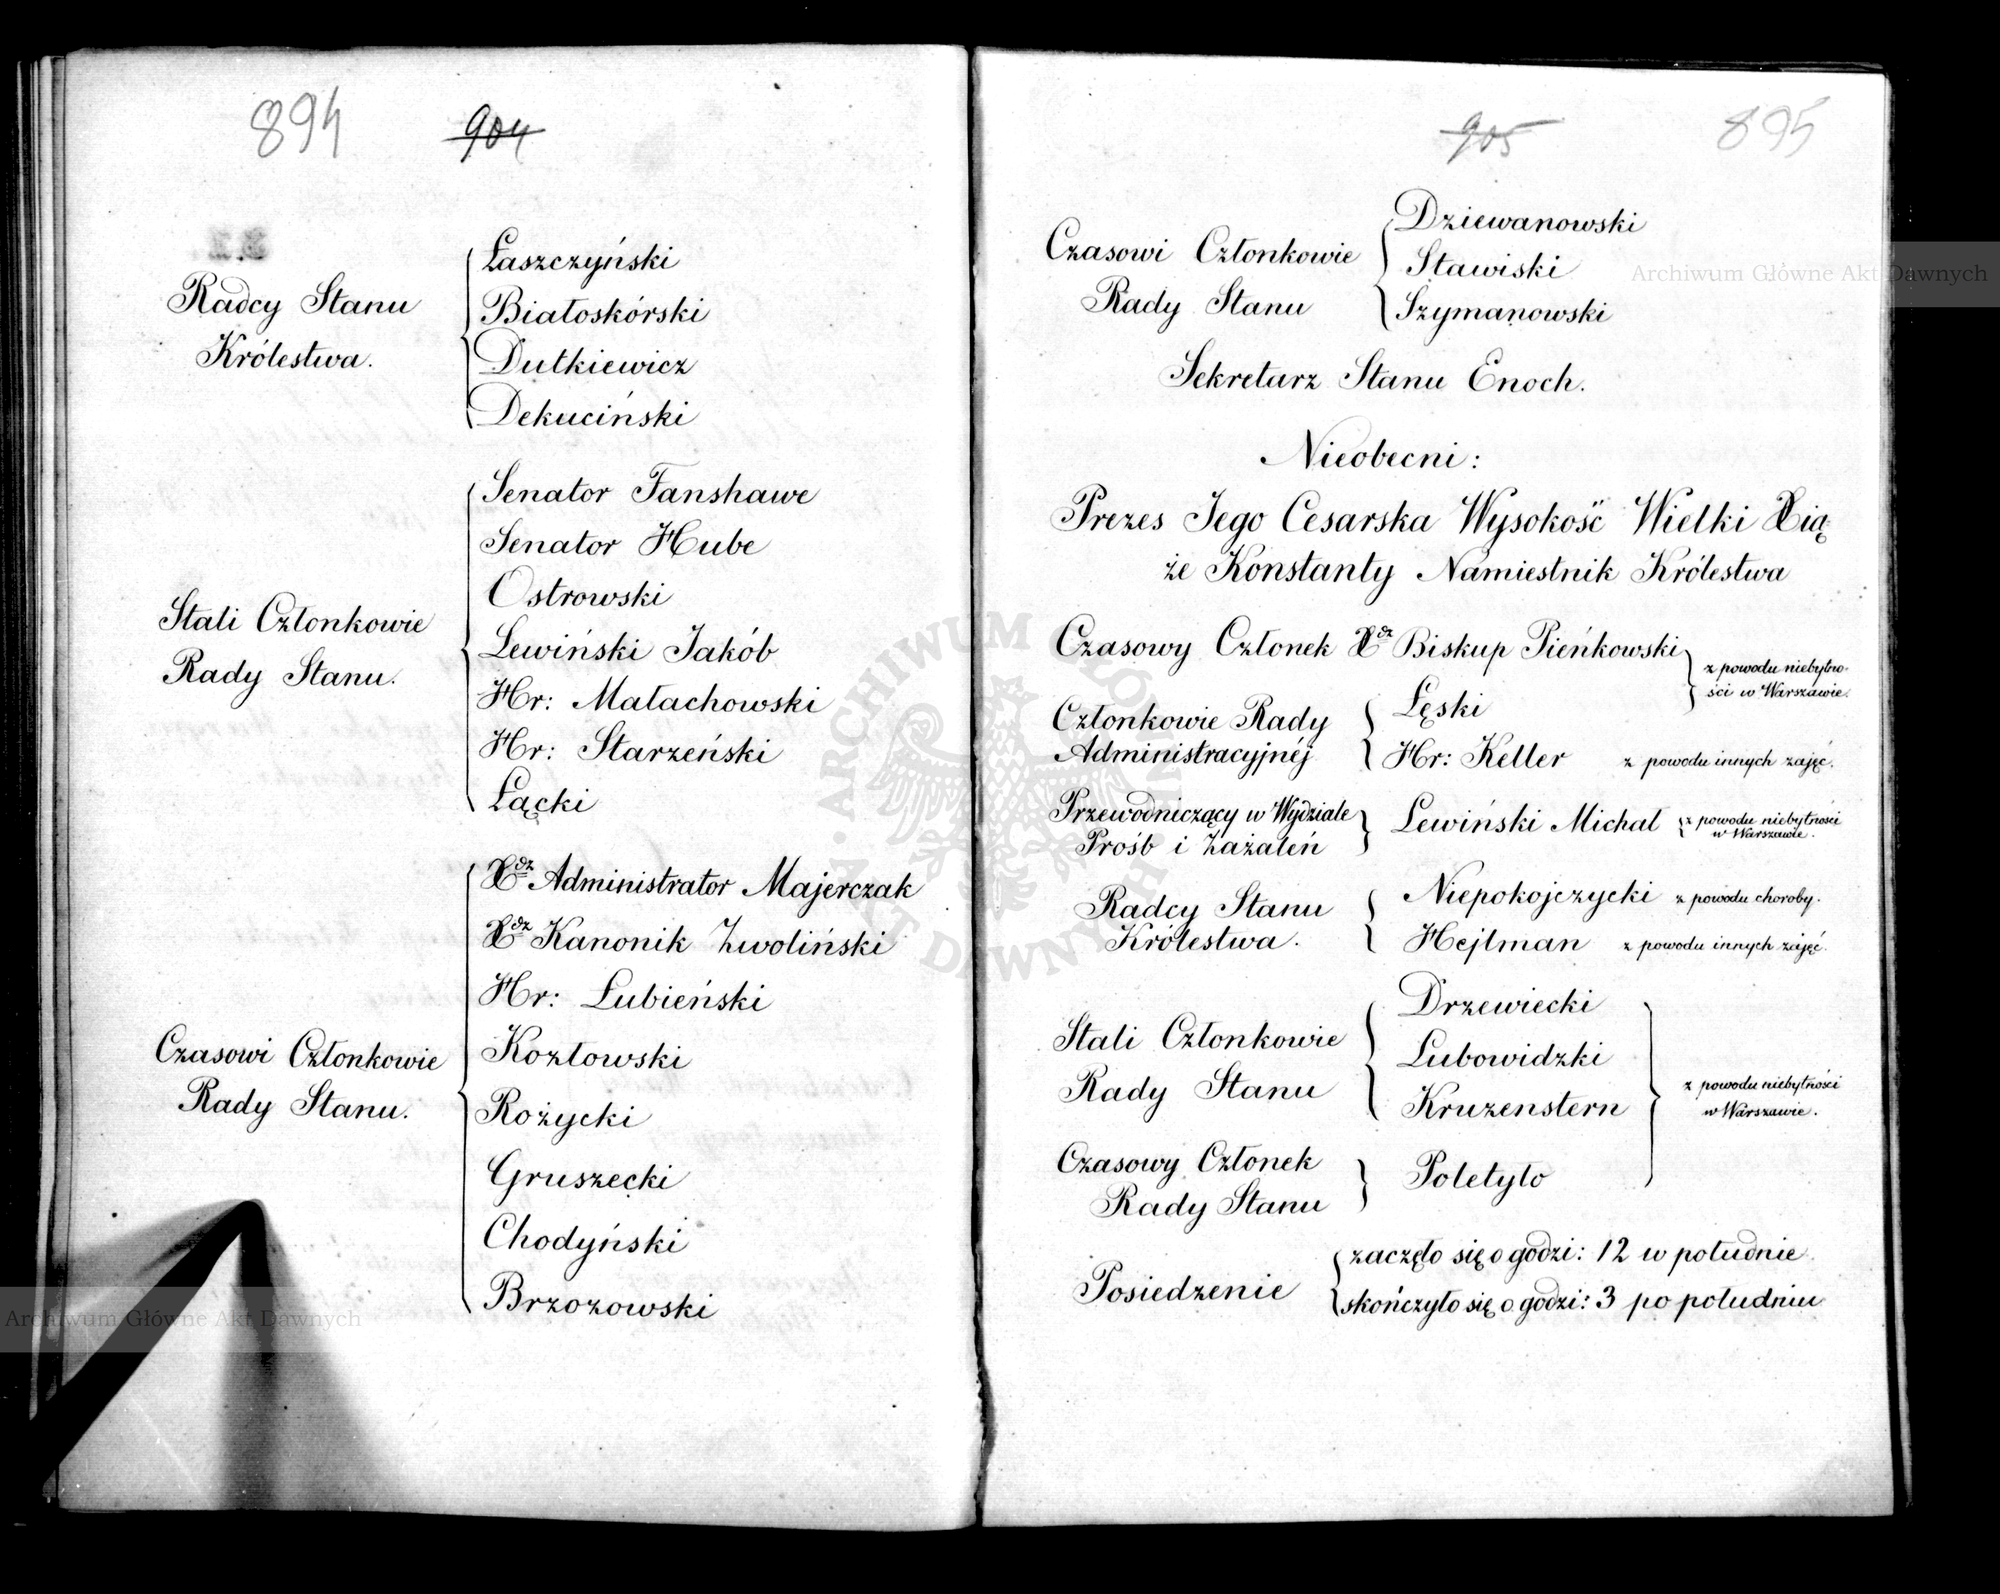 894 904
Radcy Stanu
Królestwa.
Łaszczyński
Białoskórski
Dutkiewicz
Dekuciński
Stali Członkowie
Rady Stanu.
Senator Fanshawe
Senator Hube
Ostrowski
Lewiński Jakób
Hr: Małachowski
Hr: Starzeński
Łącki
Czasowi Członkowie
Rady Stanu.
Xdz Administrator Majerczak
Xdz Kanonik Zwoliński
Hr: Łubieński
Kozłowski
Rożycki
Gruszecki
Chodyński
Brzozowski
905 895
Czasowi Członkowie
Rady Stanu
Dziewanowski
Stawiski
Szymanowski
Sekretarz Stanu Enoch.
Nieobecni:
Prezes Jego Cesarska Wysokość Wielki Xią
że Konstanty Namiestnik Królestwa
Czasowy Członek Xdz Biskup Pieńkowski
z powodu niebytno-
ści w Warszawie.
Członkowie Rady
Administracyjnéj
Łęski
Hr: Keller z powodu innych zajęć.
Przewodniczący w Wydziale
Prośb i Zażaleń
Lewiński Michał z powodu niebytności
w Warszawie.
Radcy Stanu
Królestwa.
Niepokojczycki z powodu choroby.
Hejlman z powodu innych zajęć.
Stali Członkowie
Rady Stanu
Drzewiecki
Lubowidzki
Kruzenstern
z powodu niebytności
w Warszawie.
Czasowy Członek
Rady Stanu
Poletyło
Posiedzenie
zaczęło się o godzi: 12 w południe.
skończyło się o godzi: 3 po południu
Archiwum Główne Akt Dawnych
Archiwum Główne Akt Dawnych
ARCHIWUM GŁÓWNE AKT DAWNYCH